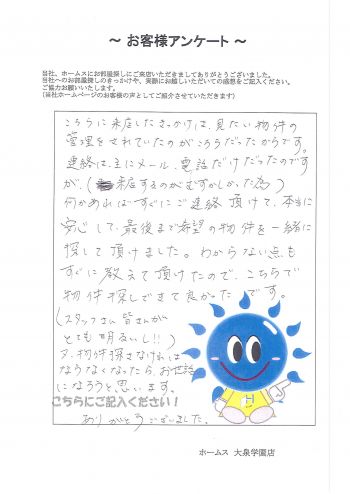 ～ お客様アンケート ～
当社、ホームスにお部屋探しにご来店いただきましてありがとうございました。
当社へのお部屋探しのきっかけや、実際にお越しいただいての感想をご記入ください。
ご協力お願いいたします。
(当社ホームページのお客様の声としてご紹介させていただきます)
こちらに来店したきっかけは、見たい物件の
管理をされていたのがこちらだったからです。
連絡は、主にメール、電話だけだったのです
が、(来店するのがむずかしかった為)
何かあればすぐにご連絡頂けて、本当に
安心して、最後まで希望の物件を一緒に
探して頂けました。わからない点も
すぐに教えて頂けたので、こちらで
物件探しできて良かったです。
(スタッフさん皆さんが
とても明るいし!!)
又、物件探さなければ
ならなくなったら、お世話
になろうと思います。
こちらにご記入ください！
ありがとうございました。
H
ホームス 大泉学園店